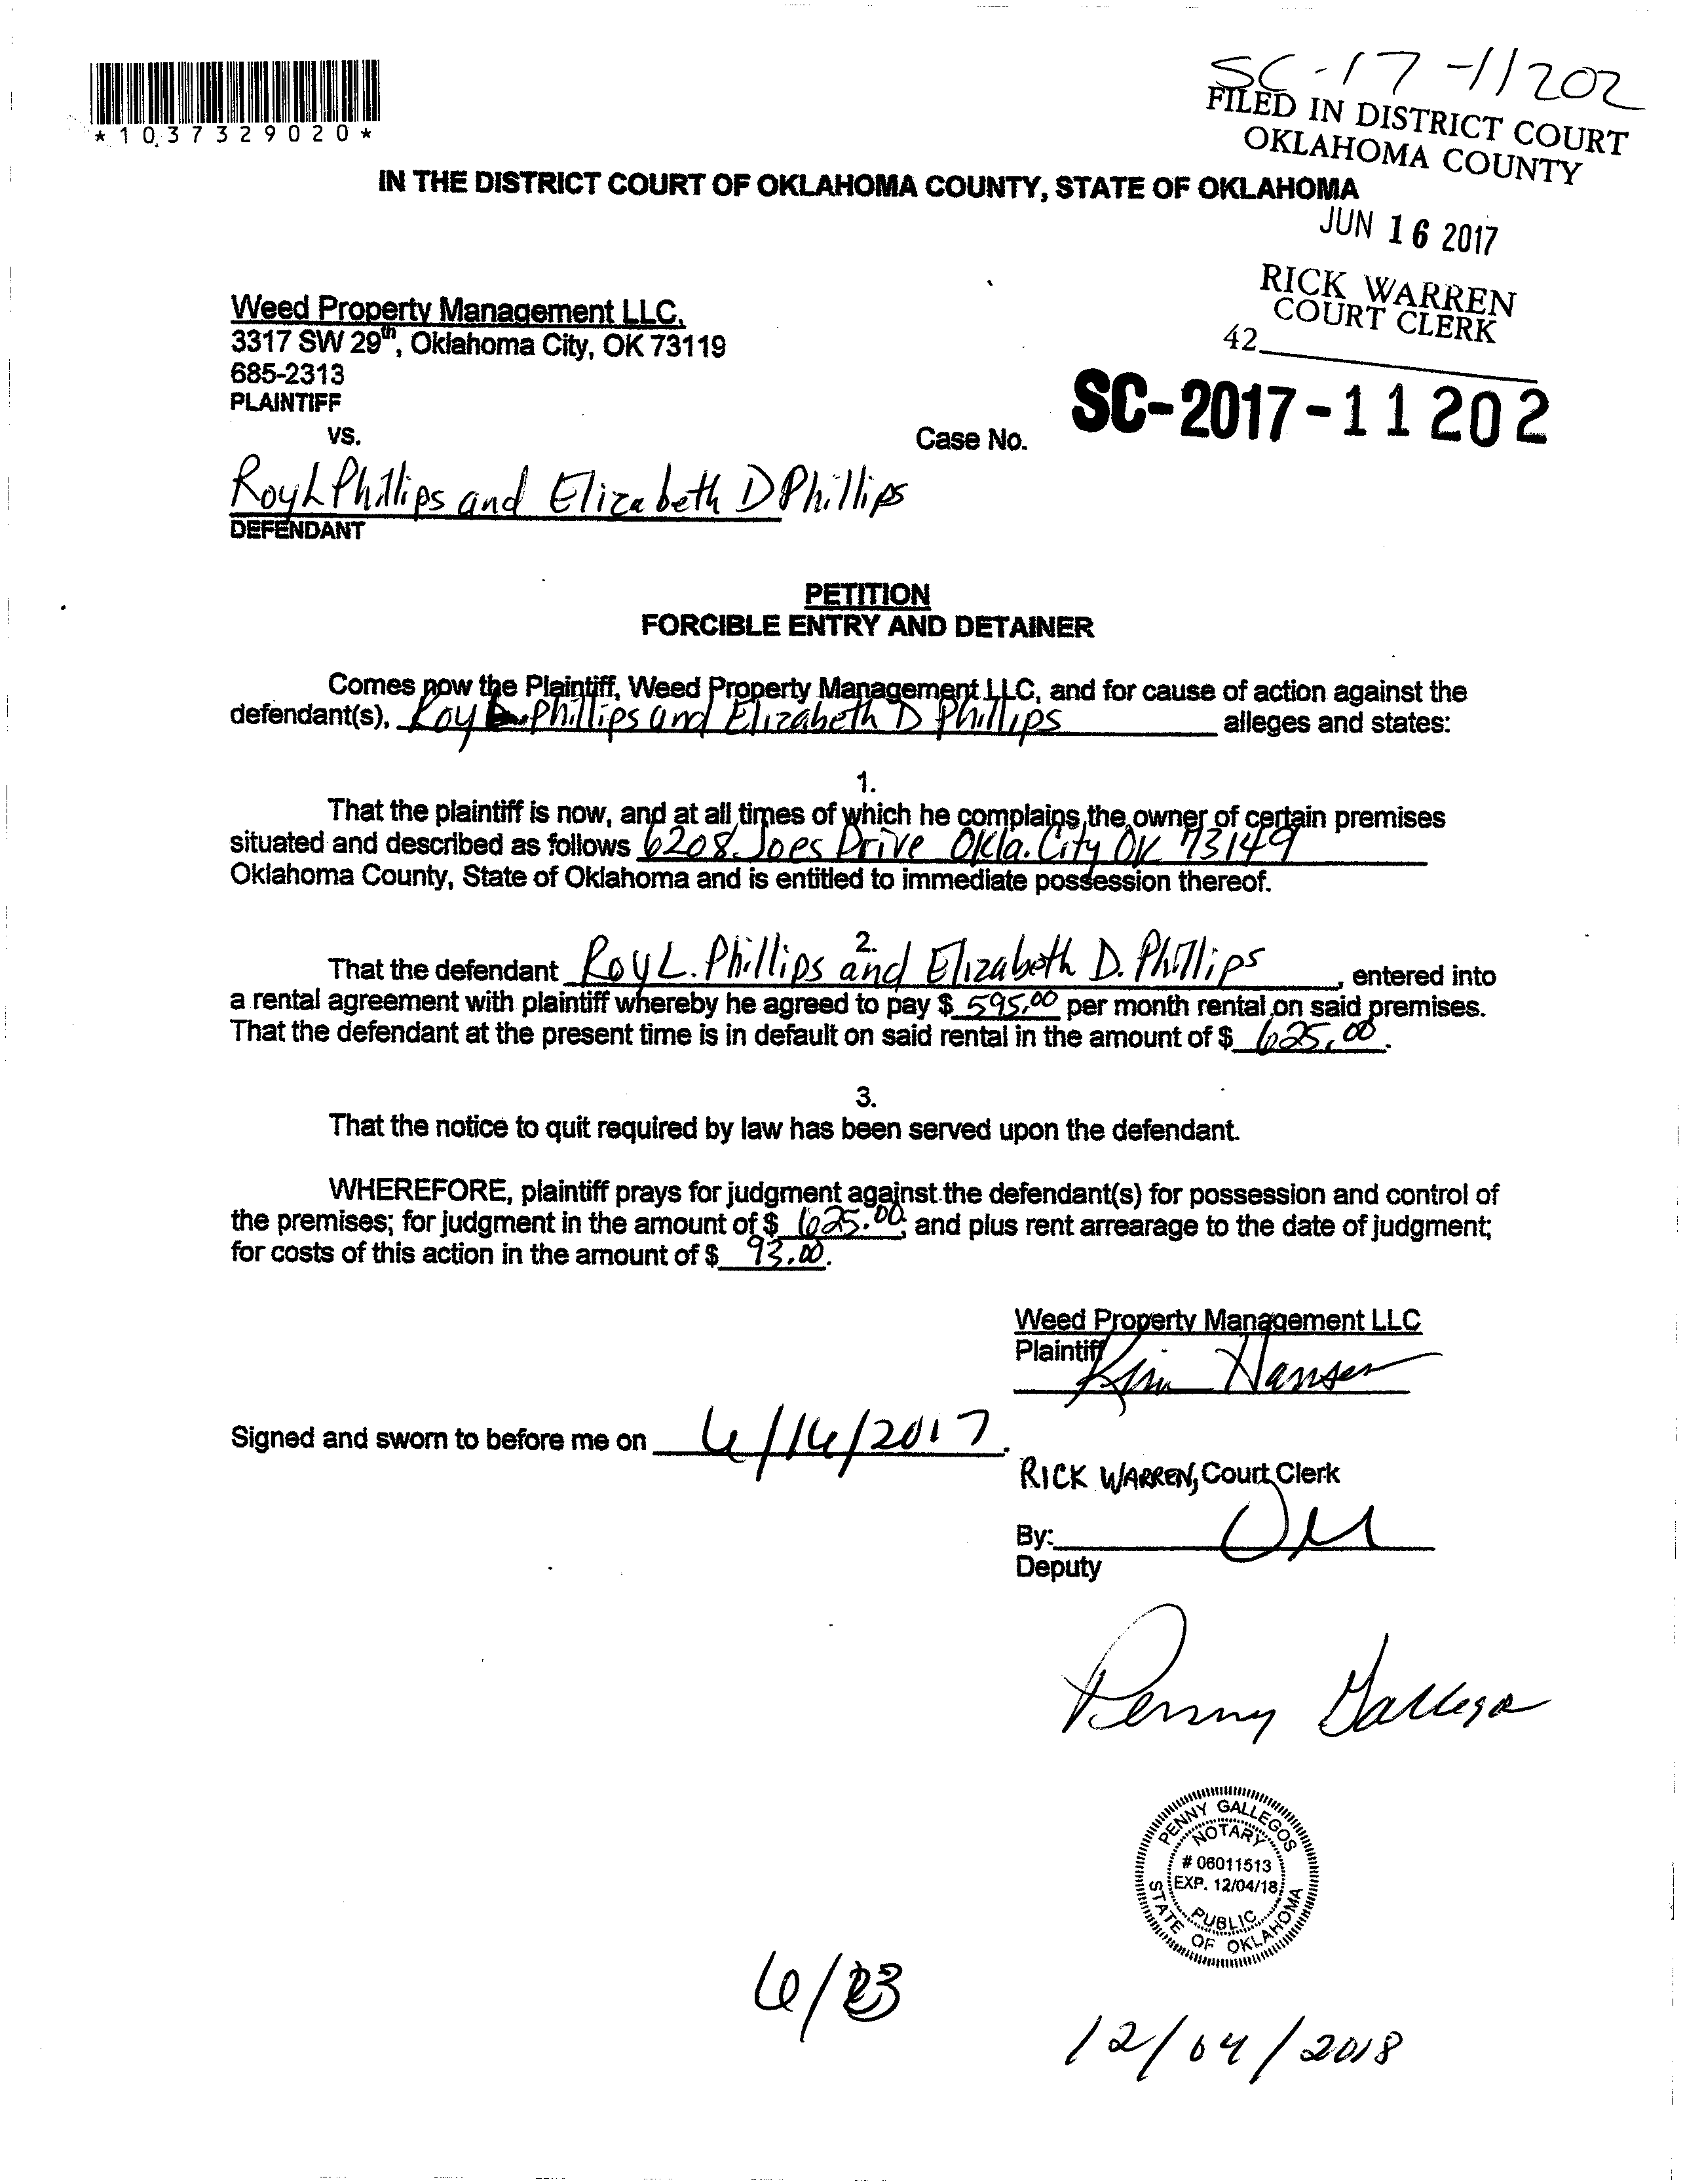 SC-17-11202
*1037329020*
FILED IN DISTRICT COURT
OKLAHOMA COUNTY
IN THE DISTRICT COURT OF OKLAHOMA COUNTY, STATE OF OKLAHOMA
JUN 16 2017
RICK WARREN
COURT CLERK
42
Weed Property Management LLC,
3317 SW 29th, Oklahoma City, OK 73119
685-2313
PLAINTIFF
vs.
Case No. SC-2017-11202
Roy L Phillips and Elizabeth D Phillips
DEFENDANT
PETITION
FORCIBLE ENTRY AND DETAINER
Comes now the Plaintiff, Weed Property Management LLC, and for cause of action against the
defendant(s), Roy Phillips and Elizabeth D Phillips alleges and states:
1.
That the plaintiff is now, and at all times of which he complains, the owner of certain premises
situated and described as follows 6208 Joes Drive Okla. City OK 73149
Oklahoma County, State of Oklahoma and is entitled to immediate possession thereof.
2.
That the defendant Roy L. Phillips and Elizabeth D. Phillips, entered into
a rental agreement with plaintiff whereby he agreed to pay $ 595.00 per month rental on said premises.
That the defendant at the present time is in default on said rental in the amount of $ 625.00.
3.
That the notice to quit required by law has been served upon the defendant.
WHEREFORE, plaintiff prays for judgment against the defendant(s) for possession and control of
the premises; for judgment in the amount of $ 625.00; and plus rent arrearage to the date of judgment;
for costs of this action in the amount of $ 93.00.
Weed Property Management LLC
Plaintiff
Kim Hansen
Signed and sworn to before me on 6/16/2017.
RICK WARREN, Court Clerk
By:
Deputy
Penny Gallegos
PENNY GALLEGOS
NOTARY
# 06011513
EXP. 12/04/18
PUBLIC
STATE OF OKLAHOMA
6/23
12/04/2018